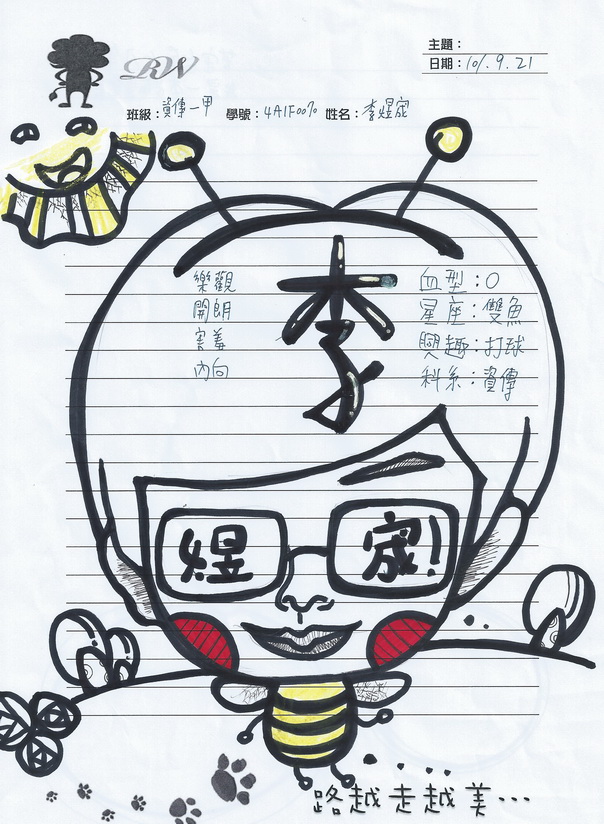 RW
主題：
日期：101.9.21
班級：資傳一甲 學號：4A1F0070 姓名：李煜宬
樂觀
開朗
害羞
內向
李
血型：O
星座：雙魚
興趣：打球
科系：資傳
煜宬!
路越走越美...